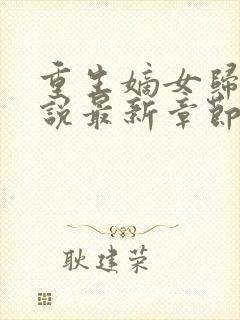 重生嫡女歸
說最新章節
耿建荣